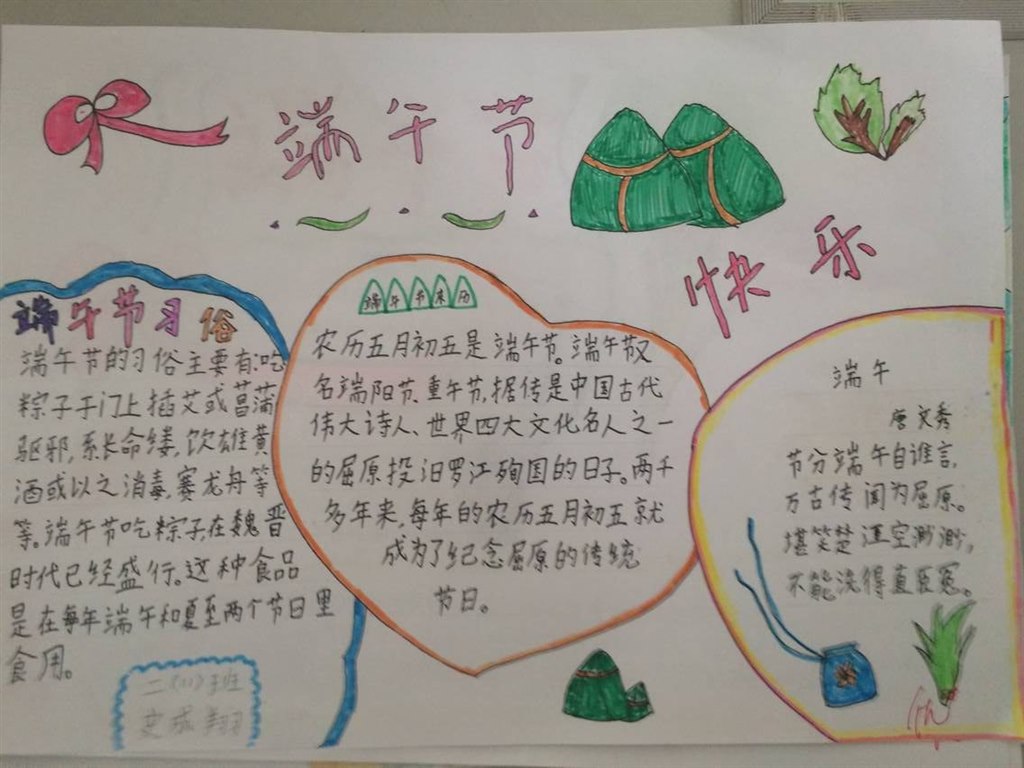 端午节
快乐
端午节习俗
端午节的习俗主要有:吃
粽子于门上插艾或菖蒲
驱邪,系长命缕,饮雄黄
酒或以之消毒,赛龙舟等
等。端午节吃粽子,在魏晋
时代已经盛行。这种食品
是在每年端午和夏至两个节日里
食用。
二(11)班
端午节来历
农历五月初五是端午节。端午节又
名端阳节、重午节,据传是中国古代
伟大诗人、世界四大文化名人之一
的屈原投汨罗江殉国的日子。两千
多年来,每年的农历五月初五就
成为了纪念屈原的传统
节日。
端午
唐 文秀
节分端午自谁言,
万古传闻为屈原。
堪笑楚江空渺渺,
不能洗得直臣冤。